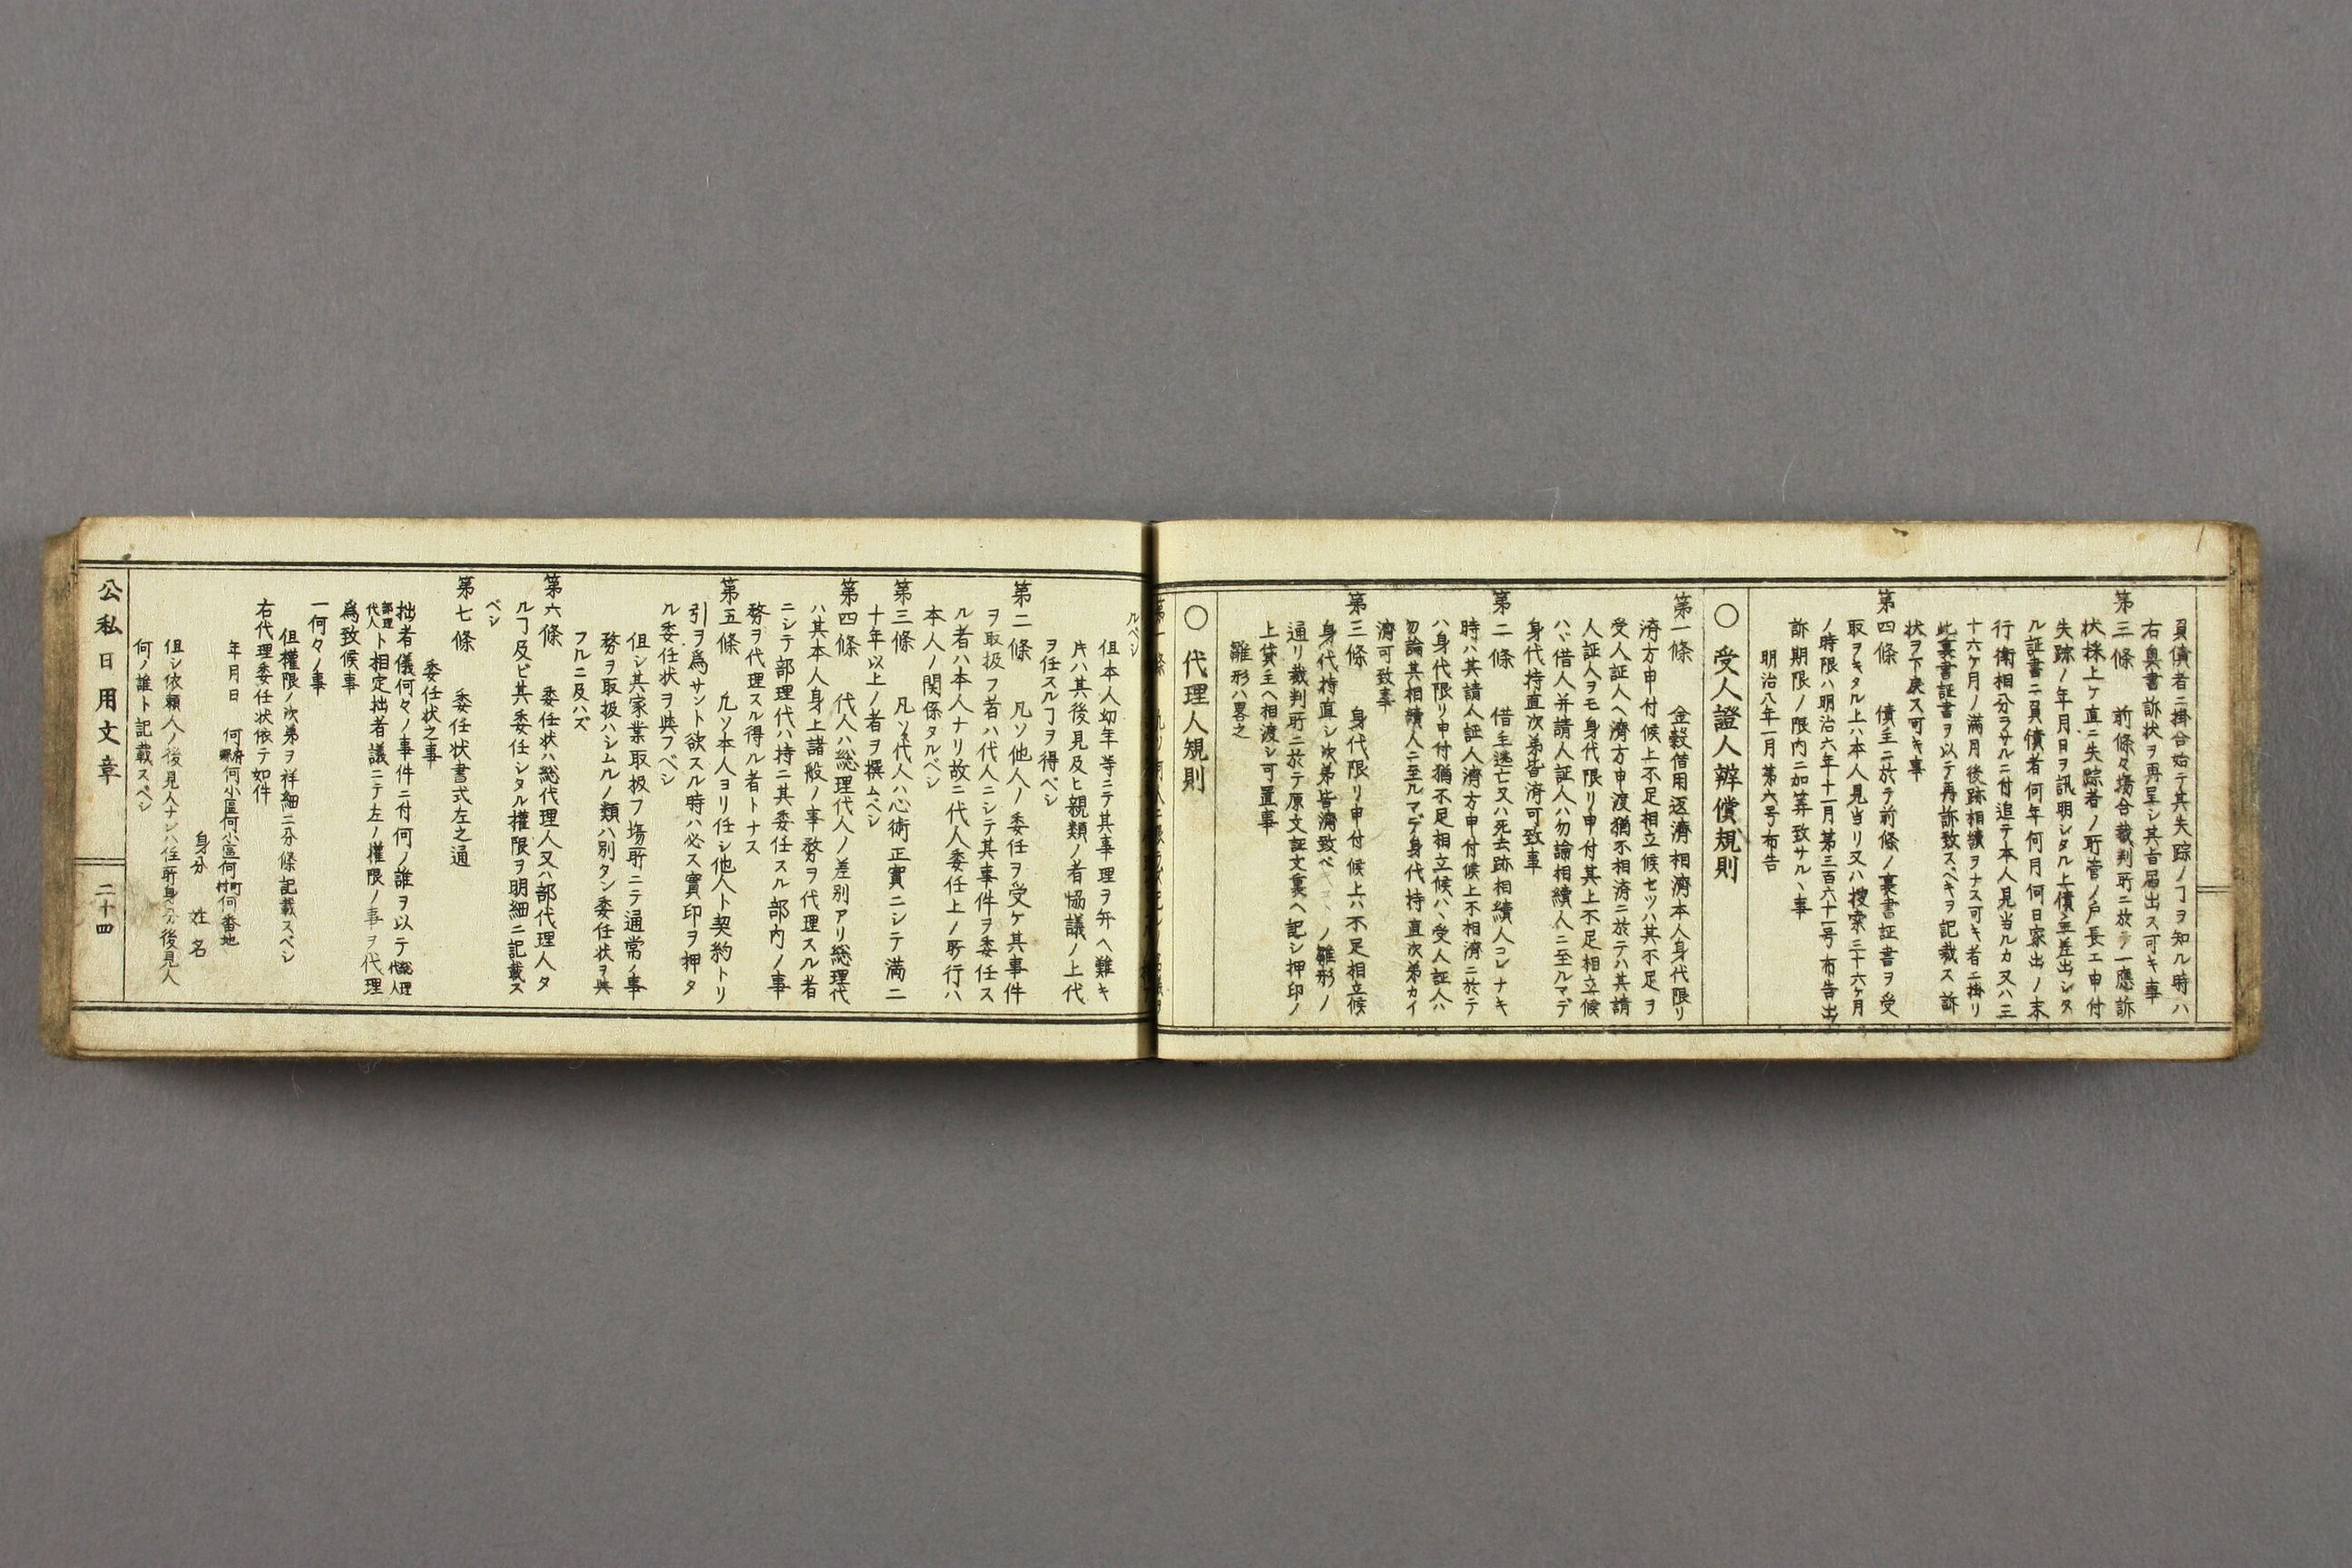 負債者ニ掛合始テ其失踪ノヿヲ知ル時ハ
右奥書訴状ヲ再呈シ其旨届出ス可キ事
第三條 前條々塲合裁判所ニ於テ一應訴
状採上ケ直ニ失踪者ノ所管ノ戸長エ申付
失踪ノ年月日ヲ訊明シタル上債主差出シタ
ル証書ニ負債者何年何月何日家出ノ末
行衛相分ラサルニ付追テ本人見当ルカ又ハ三
十六ケ月ノ満月後跡相續ヲナス可キ者ニ掛リ
此裏書証書ヲ以テ再訴致スベキヲ記載ス訴
状ヲ下戻ス可キ事
第四條 債主ニ於テ前條ノ裏書証書ヲ受
取ヲキタル上ハ本人見当リ又ハ搜索三十六ケ月
ノ時限ハ明治六年十一月第三百六十一号布告出
訴期限ノ限内ニ加筭致サル丶事
明治八年一月第六号布告
〇受人證人辨償規則
第一條 金穀借用返濟相濟本人身代限リ
濟方申付候上不足相立候セツハ其不足ヲ
受人証人ヘ濟方申渡猶不相濟ニ於テハ其請
人証人ヲモ身代限リ申付其上不足相立候
ハヾ借人并請人証人ハ勿論相續人ニ至ルマデ
身代持直次弟皆済可致事
第二條 借主逃亡又ハ死去跡相續人コレナキ
時ハ其請人証人濟方申付候上不相濟ニ於テ
ハ身代限リ申付猶不足相立候ハヽ受人証人ハ
勿論其相續人ニ至ルマデ身代持直次弟カイ
濟可致事
第三條 身代限リ申付候上六不足相立候
身代持直シ次弟皆濟致ベ ノ雛形ノ
通リ裁判所ニ於テ原文証文裏ヘ記シ押印ノ
上貸主ヘ相渡シ可置事
雛形ハ畧之
〇代理人規則
第一條 凡ソ何人ニ限ラズ
ルベシ
但本人幼年等ニテ其事理ヲ弁ヘ難キ
片ハ其後見及ヒ親類ノ者恊議ノ上代
ヲ任スルヿヲ得ベシ
第二條 凡ソ他人ノ委任ヲ受ケ其事件
ヲ取扱フ者ハ代人ニシテ其事件ヲ委任ス
ル者ハ本人ナリ故ニ代人委任上ノ所行ハ
本人ノ関係タルベシ
第三條 凡ソ代人ハ心術正實ニシテ満二
十年以上ノ者ヲ撰ムベシ
第四條 代人ハ総理代人ノ差別アリ総理代
ハ其本人身上諸般ノ事務ヲ代理スル者
ニシテ部理代ハ持ニ其委任スル部内ノ事
務ヲ代理スル得ル者トナス
第五條 凡ソ本人ヨリ任シ他人ト契約トリ
引ヲ爲サント欲スル時ハ必ス實印ヲ押タ
ル委任状ヲ與フベシ
但シ其家業取扱フ塲所ニテ通常ノ事
務ヲ取扱ハシムルノ類ハ別タン委任状ヲ與
フルニ及ハズ
第六條 委任状ハ総代理人又ハ部代理人タ
ルヿ及ビ其委任シタル權限ヲ明細ニ記載ス
ベシ
第七條 委任状書式左之通
委任状之事
拙者儀何々ノ事件ニ付何ノ誰ヲ以テ総理代人
部理代人ト相定拙者議ニテ左ノ權限ノ事ヲ代理
爲致候事
一何々ノ事
但權限ノ次弟ヲ祥細ニ分條記載スベシ
右代理委任状依テ如件
年月日 何府縣何小區何小區何町村何番地
身分 姓名
但シ依頼人ノ後見人ナレハ住所身分後見人
何ノ誰ト記載スベシ
公私日用文章 二十四